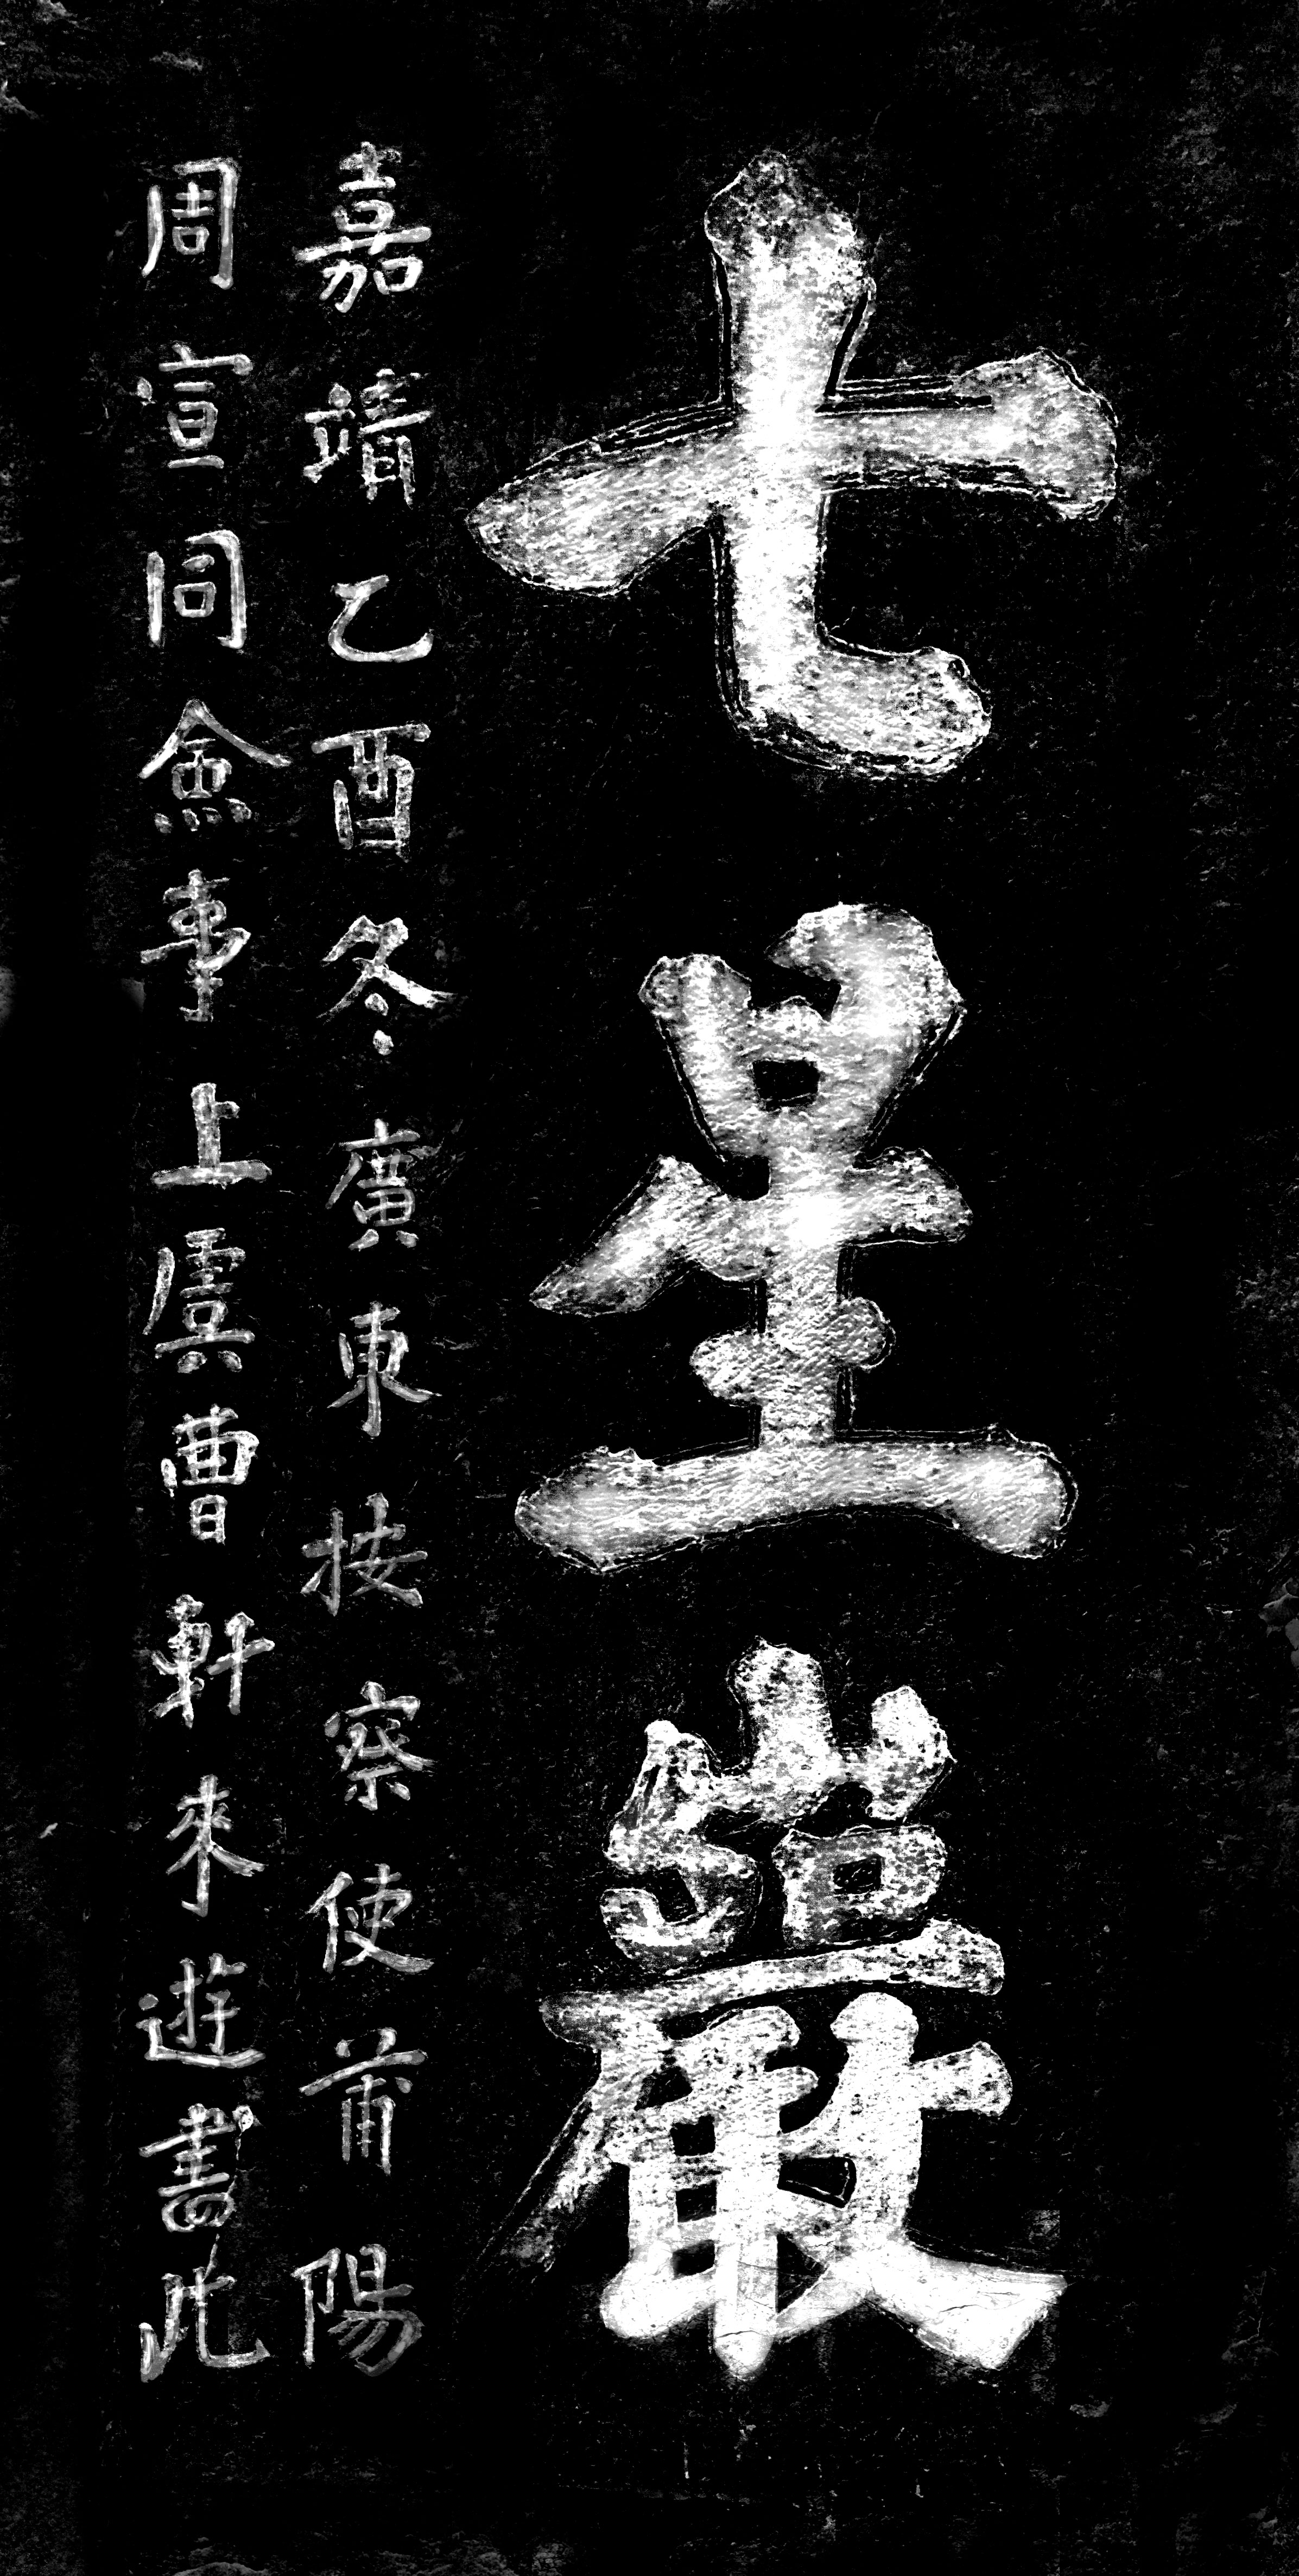 七星巖
嘉靖乙酉冬廣東按察使莆陽
周宣同僉事上虞曹軒來遊書此